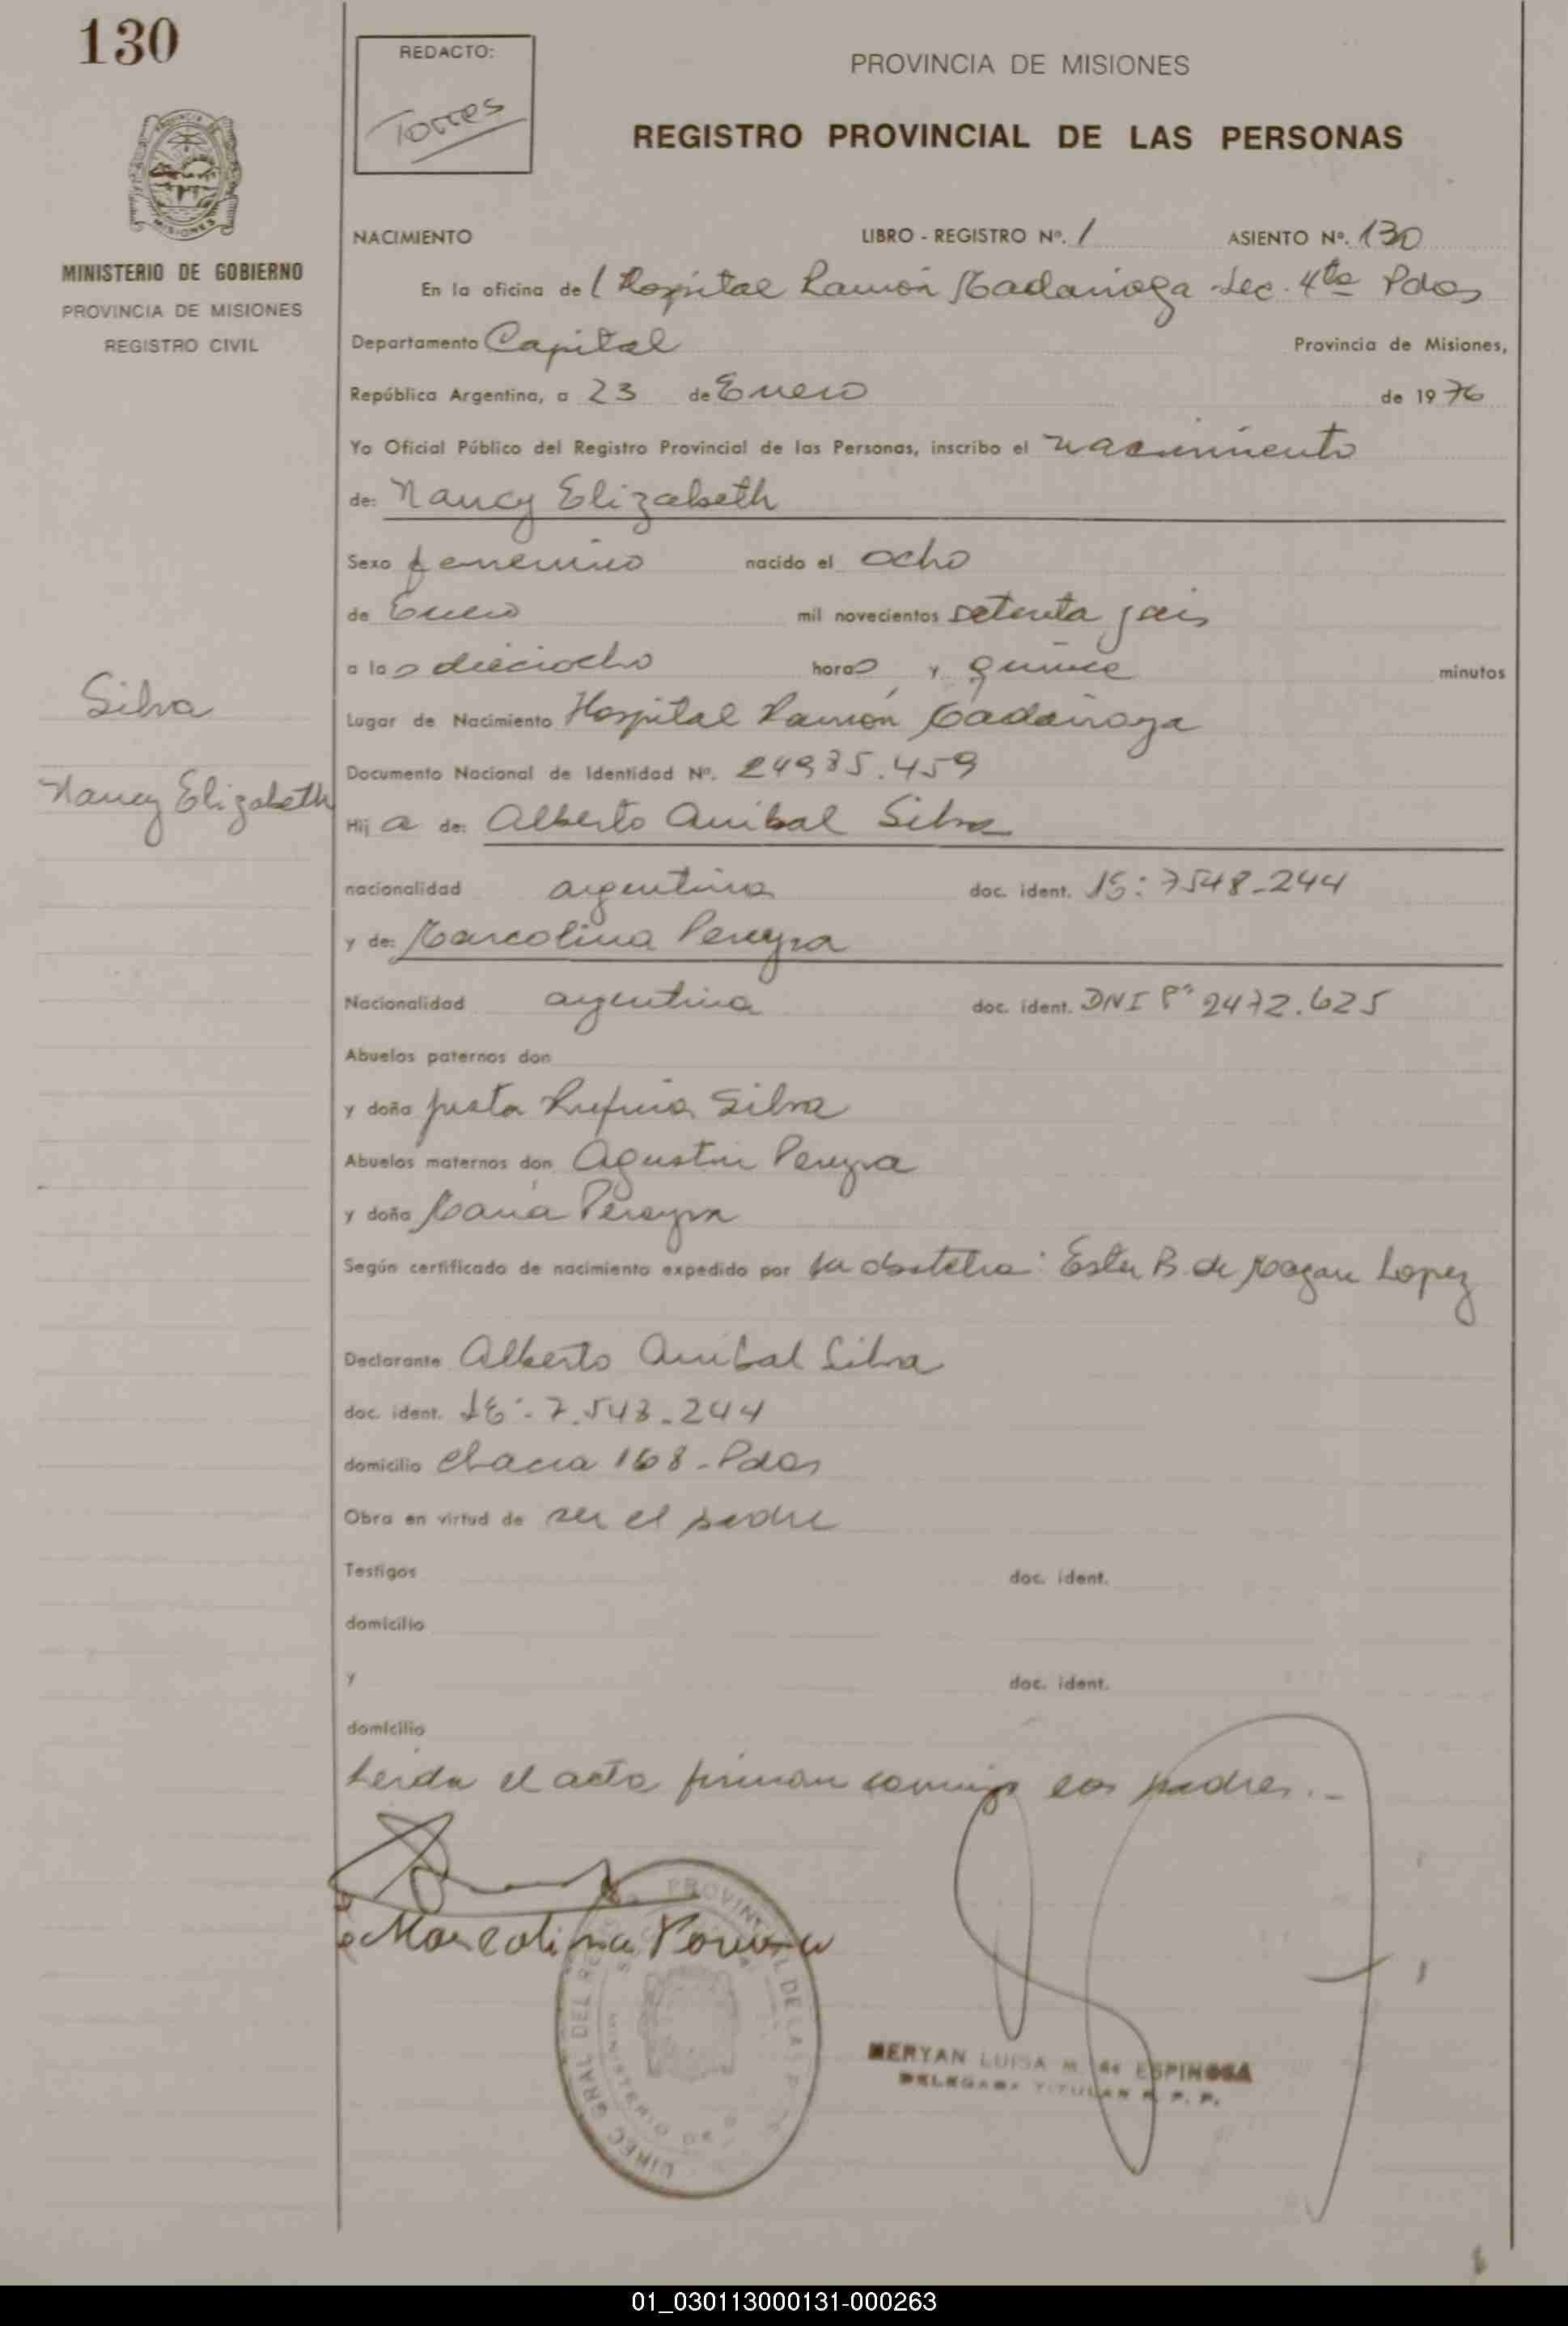 130
MINISTERIO DE GOBIERNO
PROVINCIA DE MISIONES
REGISTRO CIVIL
Silva
Nancy Elizabeth
REDACTO:
Torres
PROVINCIA DE MISIONES
REGISTRO PROVINCIAL DE LAS PERSONAS
NACIMIENTO LIBRO - REGISTRO Nº. 1 ASIENTO Nº. 130
En la oficina del Hospital Ramón Madariaga Sec. 4ta Pdas
Departamento Capital Provincia de Misiones,
República Argentina, a 23 de Enero de 1976
Yo Oficial Público del Registro Provincial de las Personas, inscribo el nacimiento
de: Nancy Elizabeth
Sexo femenino nacido el ocho
de Enero mil novecientos setenta y seis
a las dieciocho horas y quince minutos
Lugar de Nacimiento Hospital Ramón Madariaga
Documento Nacional de Identidad Nº. 24985.459
Hija de: Alberto Anibal Silva
nacionalidad argentina doc. ident. 7548-244
y de: Marcolina Pereyra
Nacionalidad argentina doc. ident. DNI 2472.625
Abuelos paternos don
y doña Justa Rufina Silva
Abuelos maternos don Agustin Pereyra
y doña María Pereyra
Según certificado de nacimiento expedido por la obstetra: Ester B. de Lopez
Declarante Alberto Anibal Silva
doc. ident. LE:- 7.548-244
domicilio Chacra 168 - Pdas
Obra en virtud de ser el padre
Testigos doc. ident.
domicilio
y doc. ident.
domicilio
Leida el acta firman conmigo los padres.-
Marcolina Pereyra
DIREC GRAL DEL REG PROVINCIAL DE LAS P
MINISTERIO DE
MERYAN LUISA M. de ESPINOSA
DELEGADA TITULAR R. P. P.
01_030113000131-000263